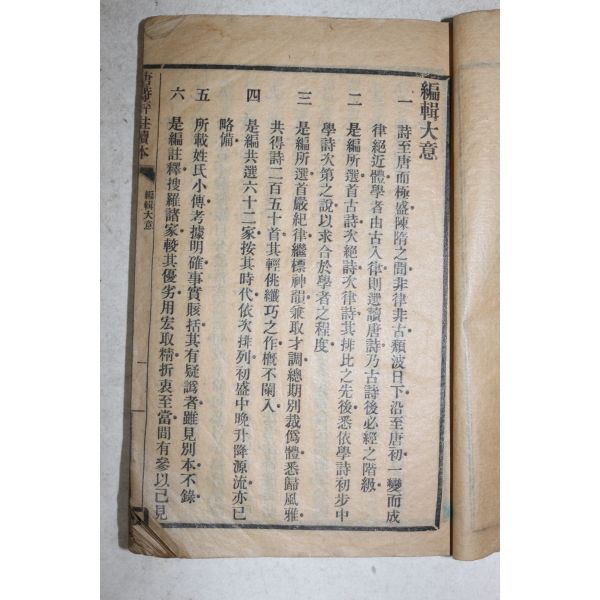 編輯大意
一 詩至唐而極盛陳隋之間非律非古頹波日下沿至唐初一變而成
律絕近體學者由古入律則選讀唐詩乃古詩後必經之階級
二 是編所選首古詩次絕詩次律詩其排比之先後悉依學詩初步中
學詩次第之說以求合於學者之程度
三 是編所選首嚴紀律繼標神韻兼取才調總期別裁僞體悉歸風雅
共得詩二百五十首其輕佻纖巧之作槪不闌入
四 是編共選六十二家按其時代依次排列初盛中晚升降源流亦已
略備
五 所載姓氏小傳考據明確事實賅括其有疑譌者雖見別本不錄
六 是編註釋搜羅諸家較其優劣用宏取精折衷至當間有參以己見
唐詩評註讀本
編輯大意
一